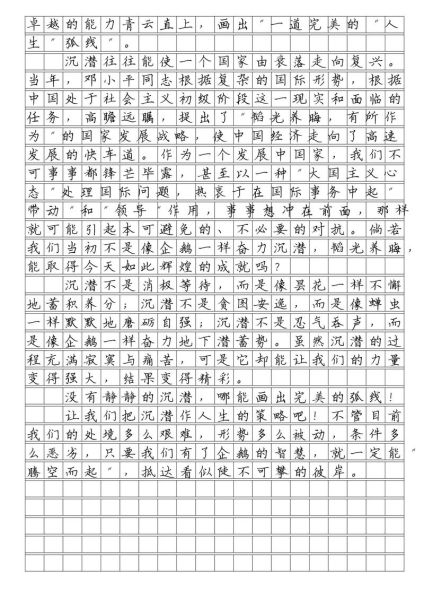 卓越的能力青云直上，画出“一道完美的“人
生“弧线”。
沉潜往往能使一个国家由衰落走向复兴。
当年，邓小平同志根据复杂的国际形势，根据
中国处于社会主义初级阶段这一现实和面临的
任务，高瞻远瞩，提出了“韬光养晦，有所作
为”的国家发展战略，使中国经济走向了高速
发展的快车道。作为一个发展中国家，我们不
可事事都锋芒毕露，甚至以一种“大国主义心
态“处理国际问题，热衷于在国际事务中起“
带动“和“领导“作用，事事想冲在前面，那样
就可能引起本可避免的、不必要的对抗。倘若
我们当初不是像企鹅一样奋力沉潜，韬光养晦，
能取得今天如此辉煌的成就吗？
沉潜不是消极等待，而是像昙花一样不懈
地蓄积养分；沉潜不是贪图安逸，而是像蝉虫
一样默默地磨砺自强；沉潜不是忍气吞声，而
是像企鹅一样奋力地下潜蓄势。虽然沉潜的过
程充满寂寞与痛苦，可是它却能让我们的力量
变得强大，结果变得精彩。
没有静静的沉潜，哪能画出完美的弧线！
让我们把沉潜作人生的策略吧！不管目前
我们的处境多么艰难，形势多么被动，条件多
么恶劣，只要我们有了企鹅的智慧，就一定能“
腾空而起”，抵达看似徒不可攀的彼岸。